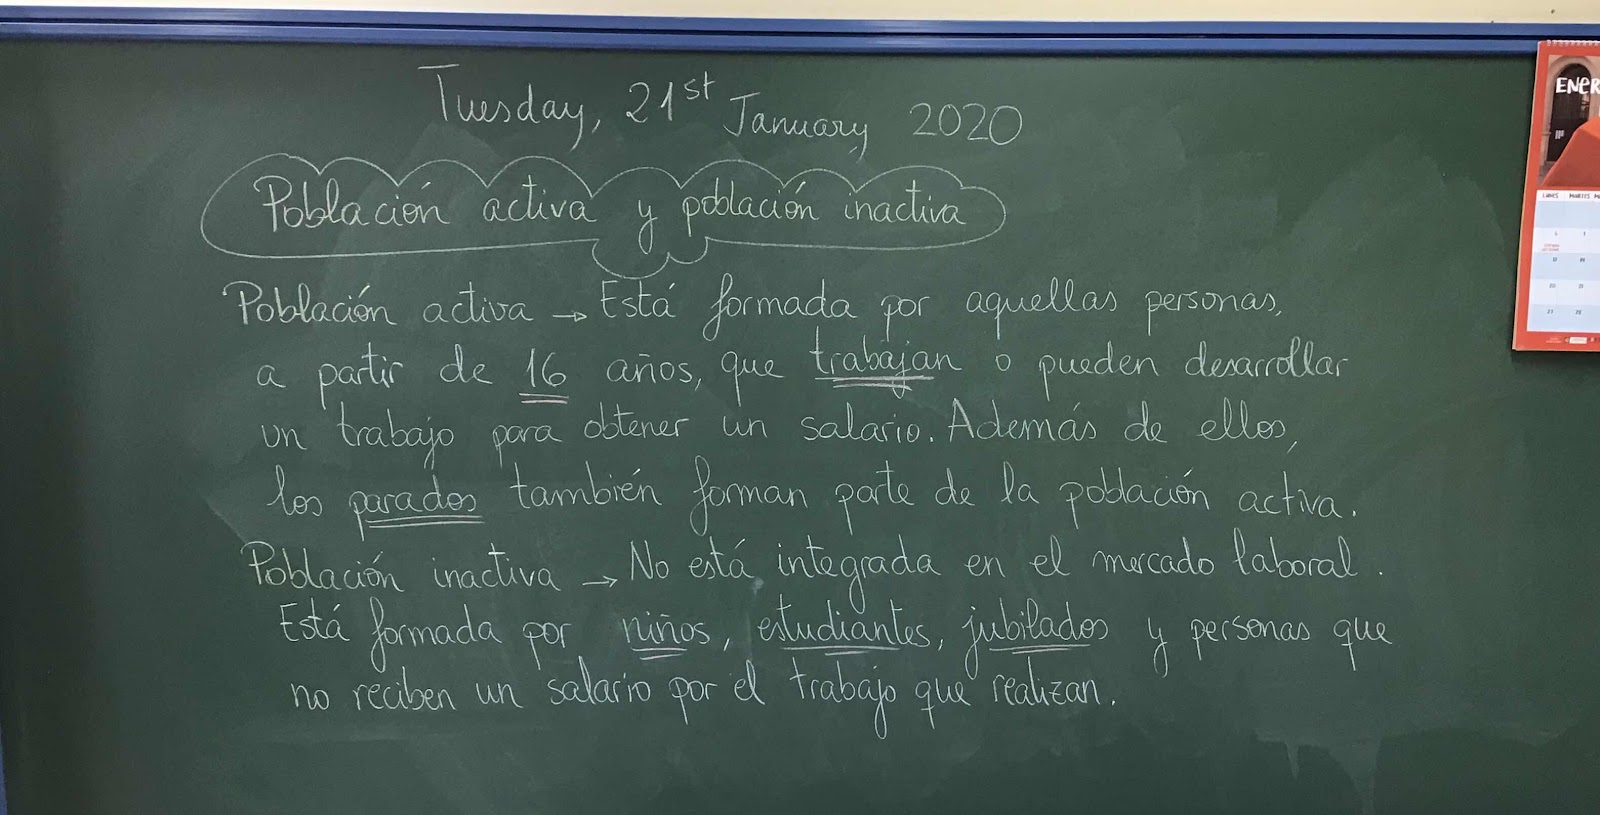 Tuesday, 21st January 2020
Población activa y población inactiva
Población activa → Está formada por aquellas personas,
a partir de 16 años, que trabajan o pueden desarrollar
un trabajo para obtener un salario. Además de ellos,
los parados también forman parte de la población activa.
Población inactiva → No está integrada en el mercado laboral.
Está formada por niños, estudiantes, jubilados y personas que
no reciben un salario por el trabajo que realizan.
ENER
LUNES MARTES